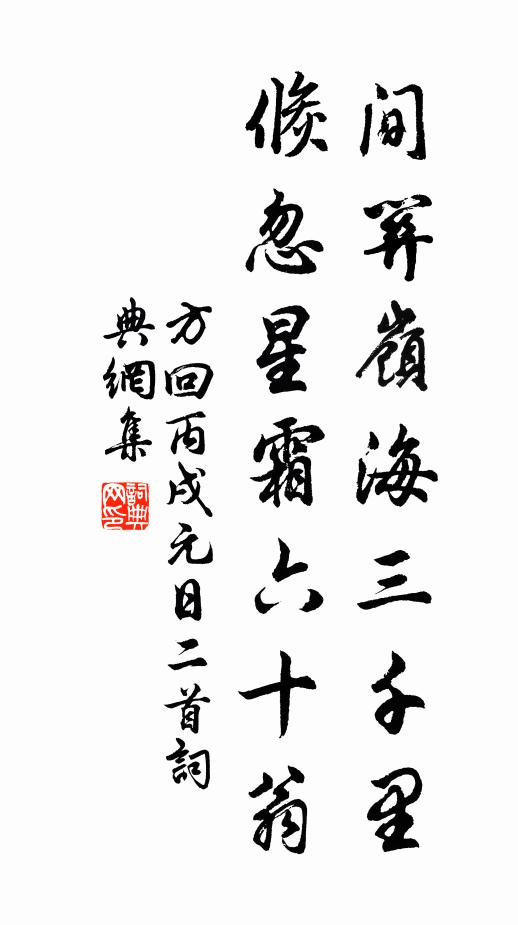 间关嶺海三千里
倏忽星霜六十翁
方回丙戌元日二首詞
典網集
詞典
网印